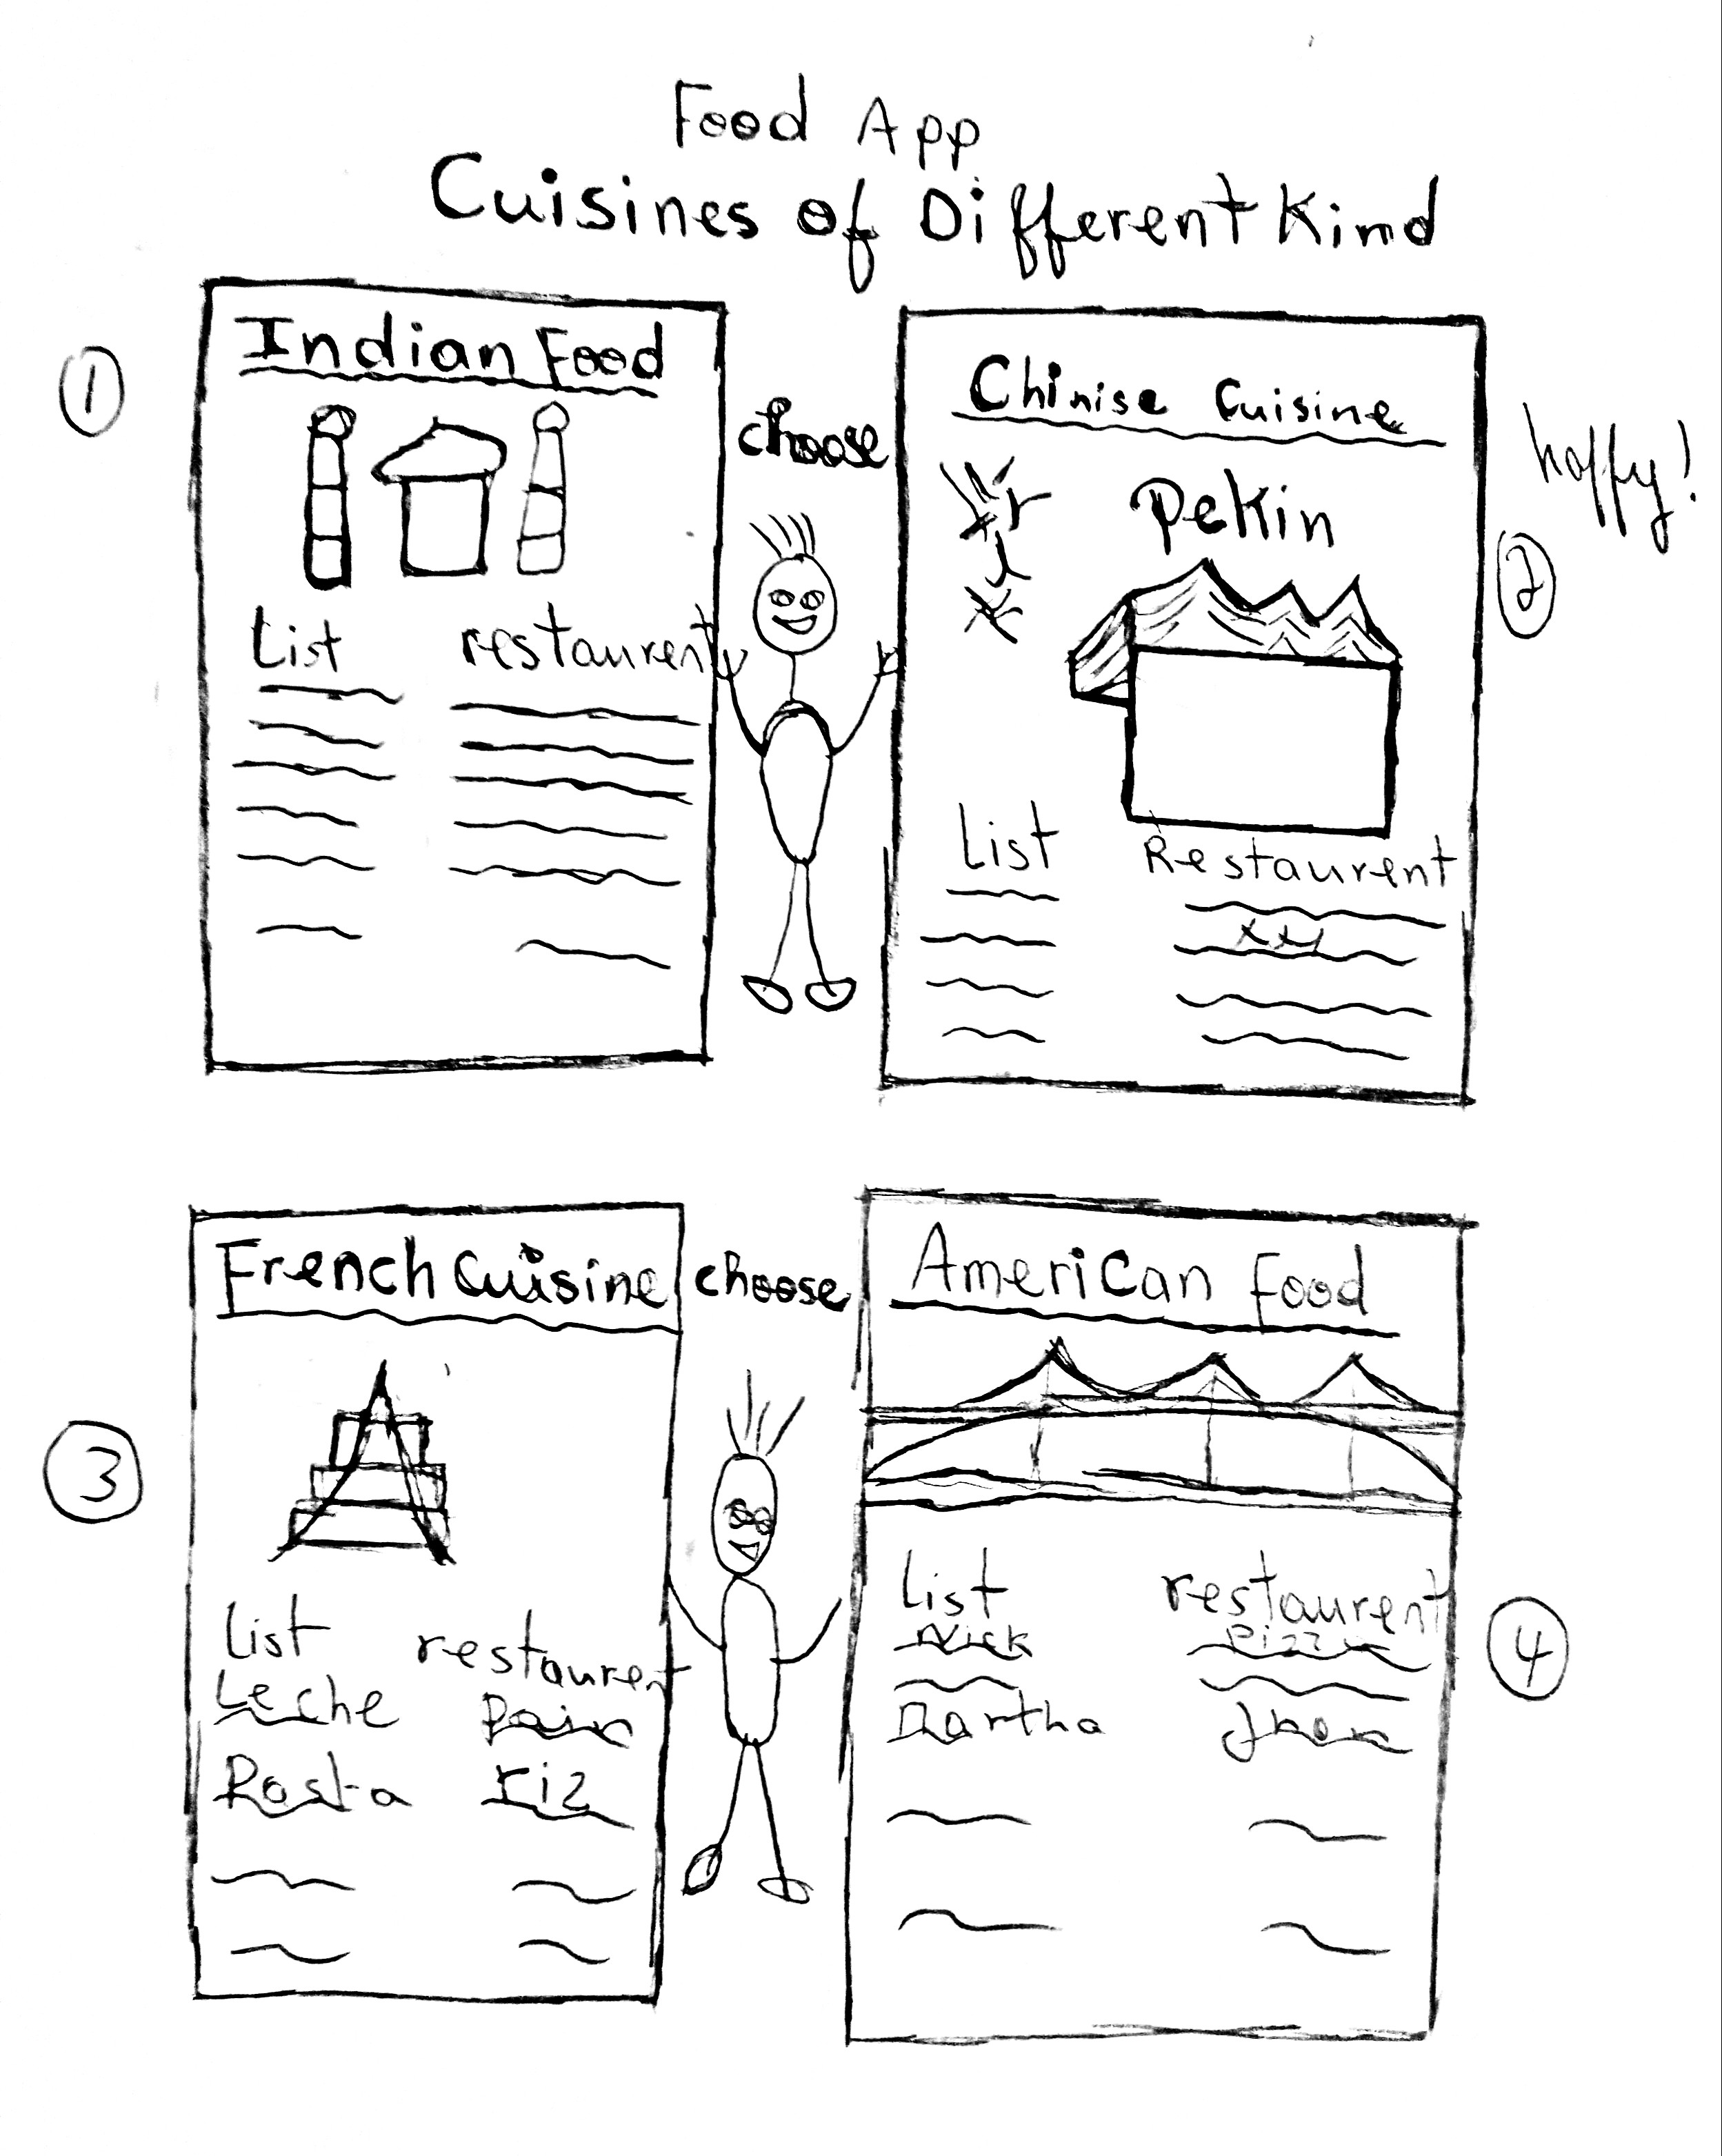 Food App
Cuisines of Different Kind
1
Indian Food
List restaurent
choose
Chinise Cuisine
Pekin
List Restaurent
xxy
happy!
2
3
French Cuisine
List restauren
Leche Pain
Rosta riz
choose
American Food
List restaurent
Nick Pizza
Martha Jhon
4